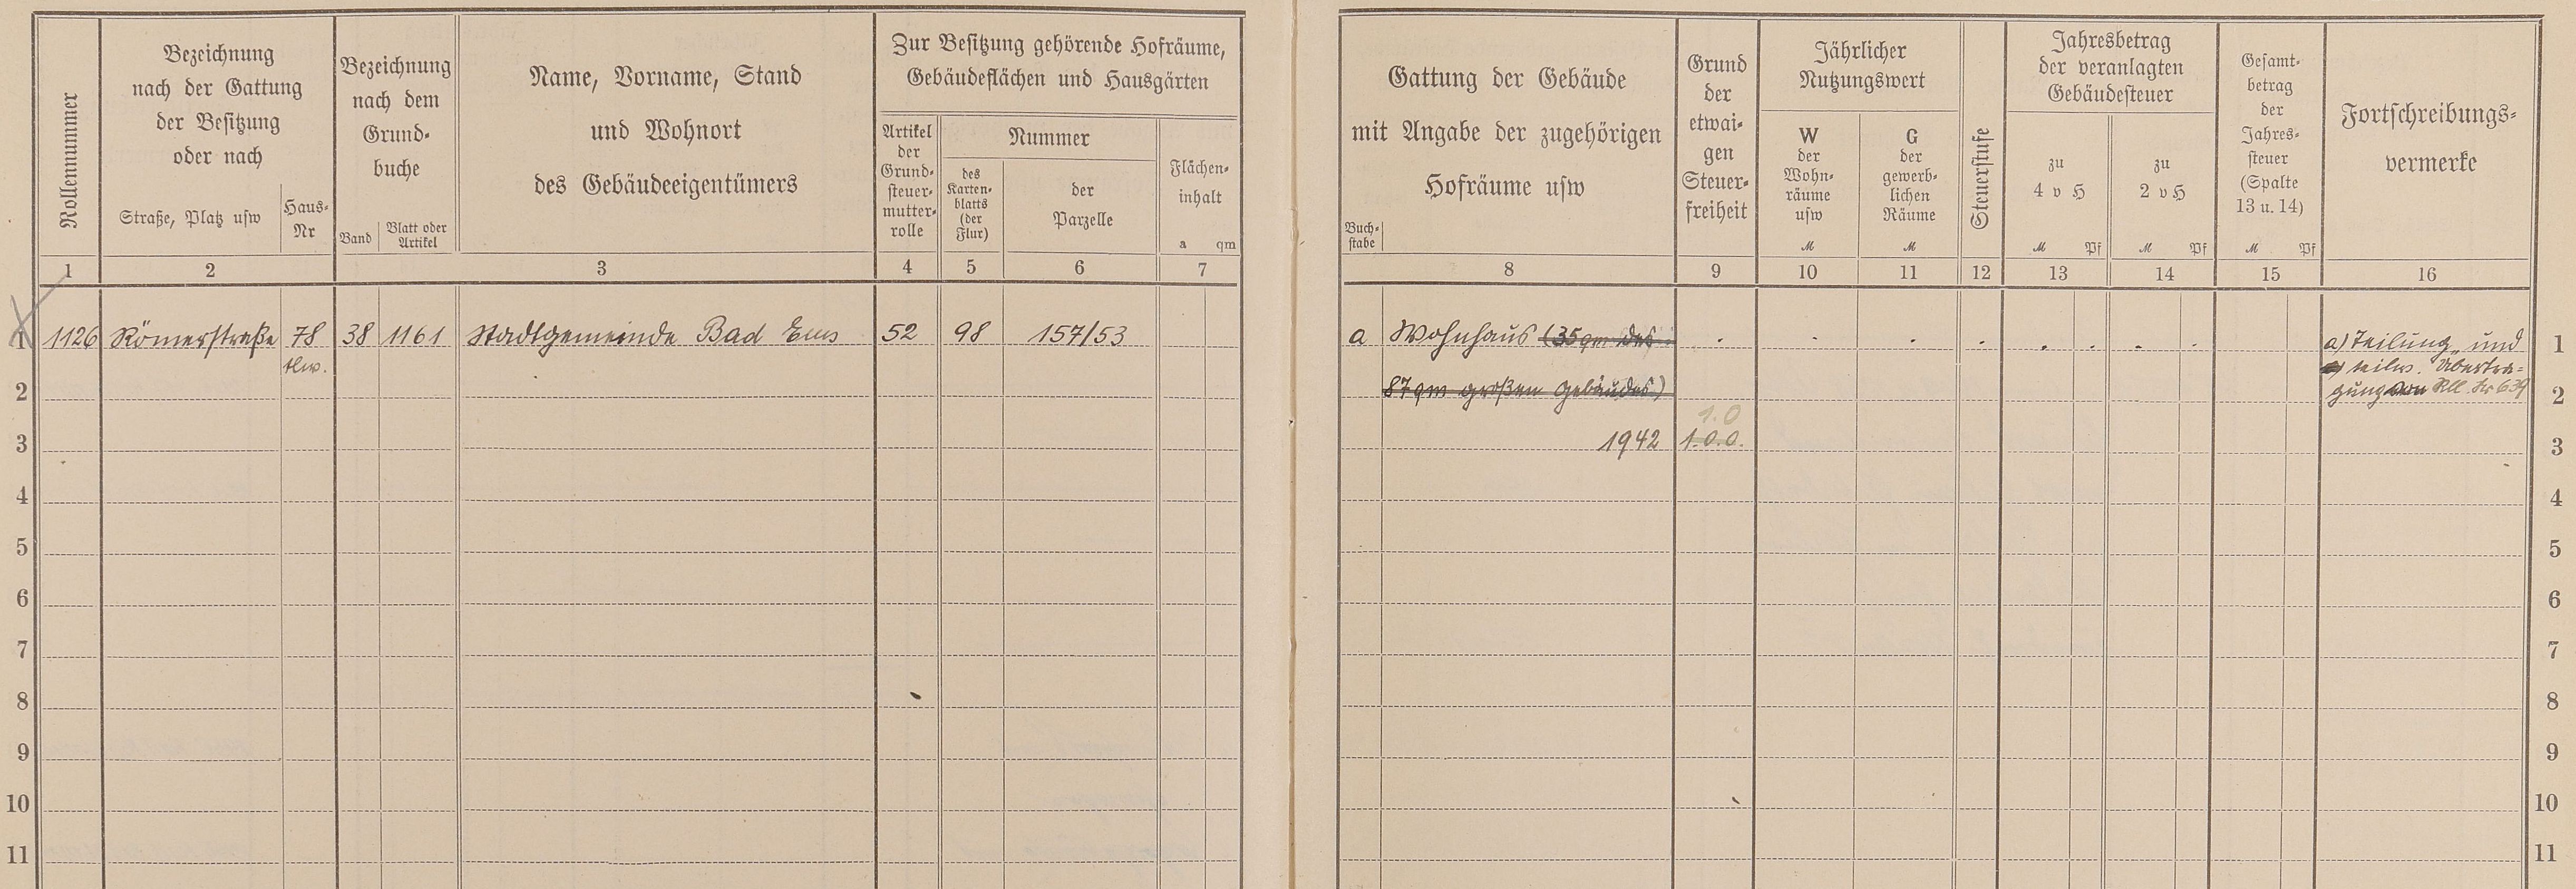 Rollennummer
Bezeichnung
nach der Gattung
der Besitzung
oder nach
Straße, Platz usw
Haus-
Nr
Bezeichnung
nach dem
Grund-
buche
Band
Blatt oder
Artikel
Name, Vorname, Stand
und Wohnort
des Gebäudeeigentümers
Zur Besitzung gehörende Hofräume,
Gebäudeflächen und Hausgärten
Artikel
der
Grund-
steuer-
mutter-
rolle
Nummer
des
Karten-
blatts
(der
Flur)
der
Parzelle
Flächen-
inhalt
a qm
1 2 3 4 5 6 7
1 1126 Römerstraße 78 38 1161 Stadtgemeinde Bad Ems 52 98 157/53
tlw.
2
3
4
5
6
7
8
9
10
11
Gattung der Gebäude
mit Angabe der zugehörigen
Hofräume usw
Buch-
stabe
Grund
der
etwai-
gen
Steuer-
freiheit
Jährlicher
Nutzungswert
W
der
Wohn-
räume
usw
M
G
der
gewerb-
lichen
Räume
M
Steuerstufe
Jahresbetrag
der veranlagten
Gebäudesteuer
zu
4 v H
M Pf
zu
2 v H
M Pf
Gesamt-
betrag
der
Jahres-
steuer
(Spalte
13 u. 14)
M Pf
Fortschreibungs-
vermerke
8 9 10 11 12 13 14 15 16
a Wohnhaus (35 qm des . . . . . . . . a) Teilung und 1
teilw. Übertra-
87 qm großen Gebäudes) gung von Rll. Nr 639 2
1.0
1942 1.0.0. 3
4
5
6
7
8
9
10
11